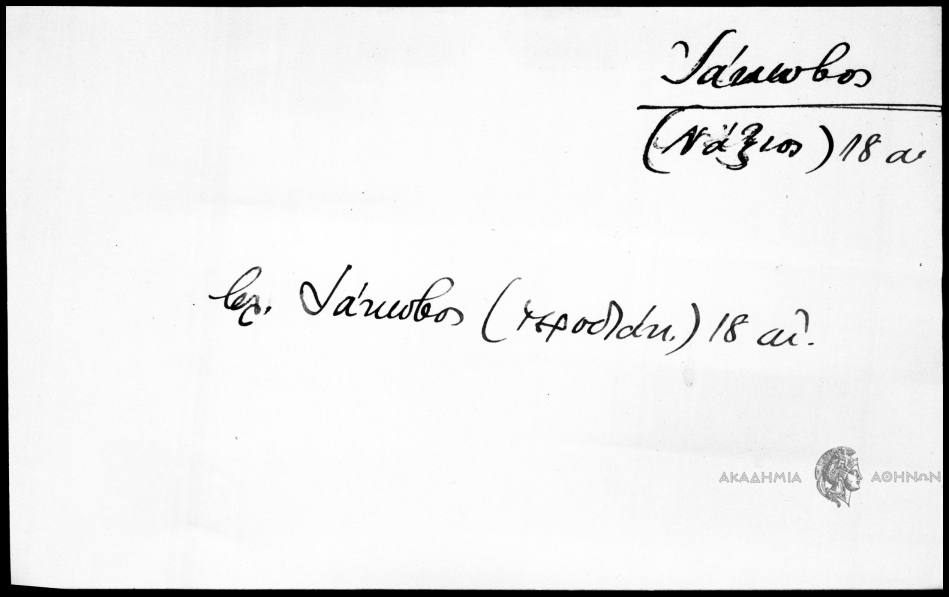 Ἰάκωβος
(Νάξιος) 18 αι
βλ. Ἰάκωβος (ιεροδιάκ.) 18 αἰ.
ΑΚΑΔΗΜΙΑ ΑΘΗΝΩΝ